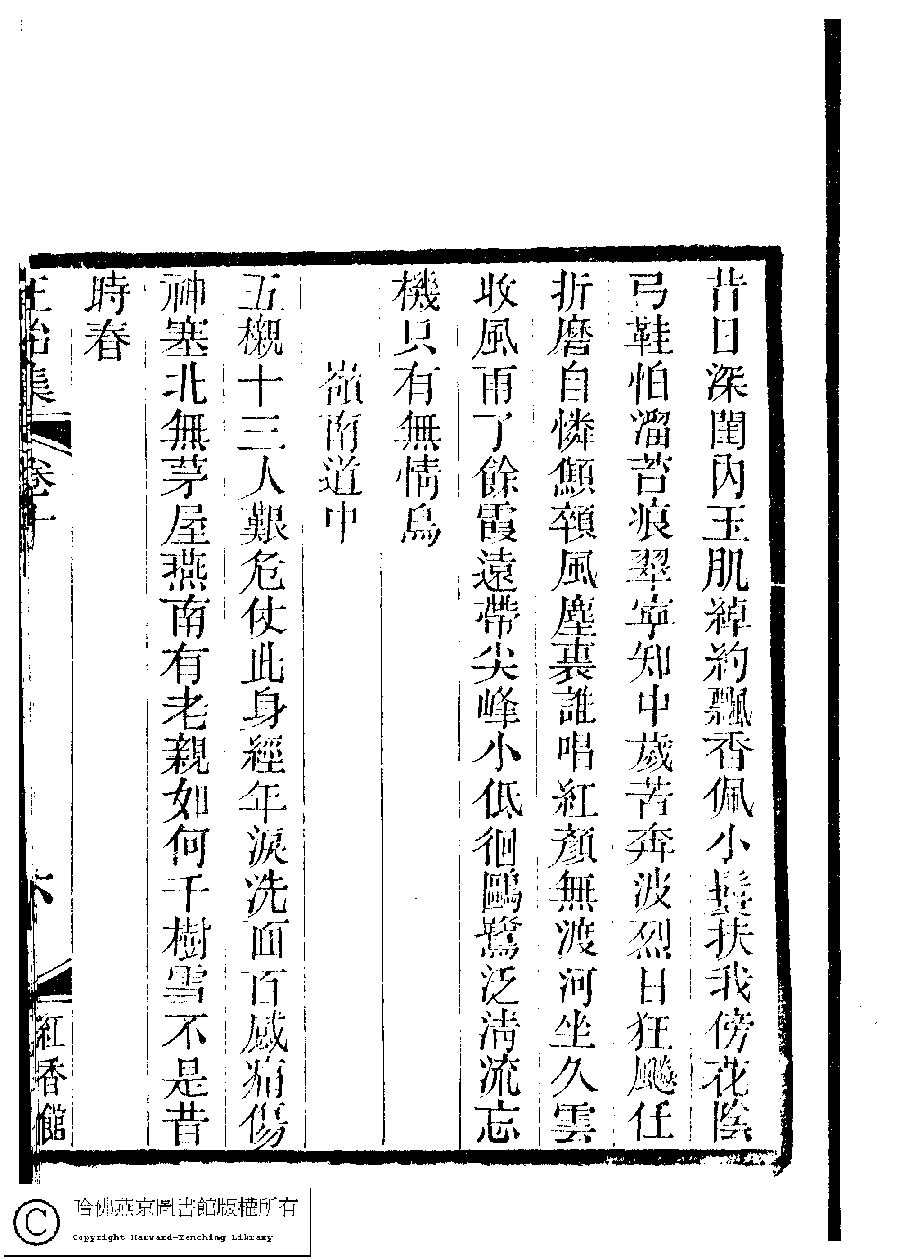 昔日深閨內玉肌綽約飄香佩小鬟扶我傍花陰
弓鞋怕溜苔痕翠寧知中歲苦奔波烈日狂飈任
折磨自憐顦顇風塵裏誰唱紅顏無渡河坐久雲
收風雨了餘霞遠帶尖峰小低徊鷗鷺泛淸流忘
機只有無情鳥
嶺南道中
五櫬十三人艱危仗此身經年淚洗面百感痛傷
神塞北無茅屋燕南有老親如何千樹雪不是昔
時春
三治集
卷十
紅香館
哈佛燕京圖書館版權所有
Copyright Harvard-Yenching Library